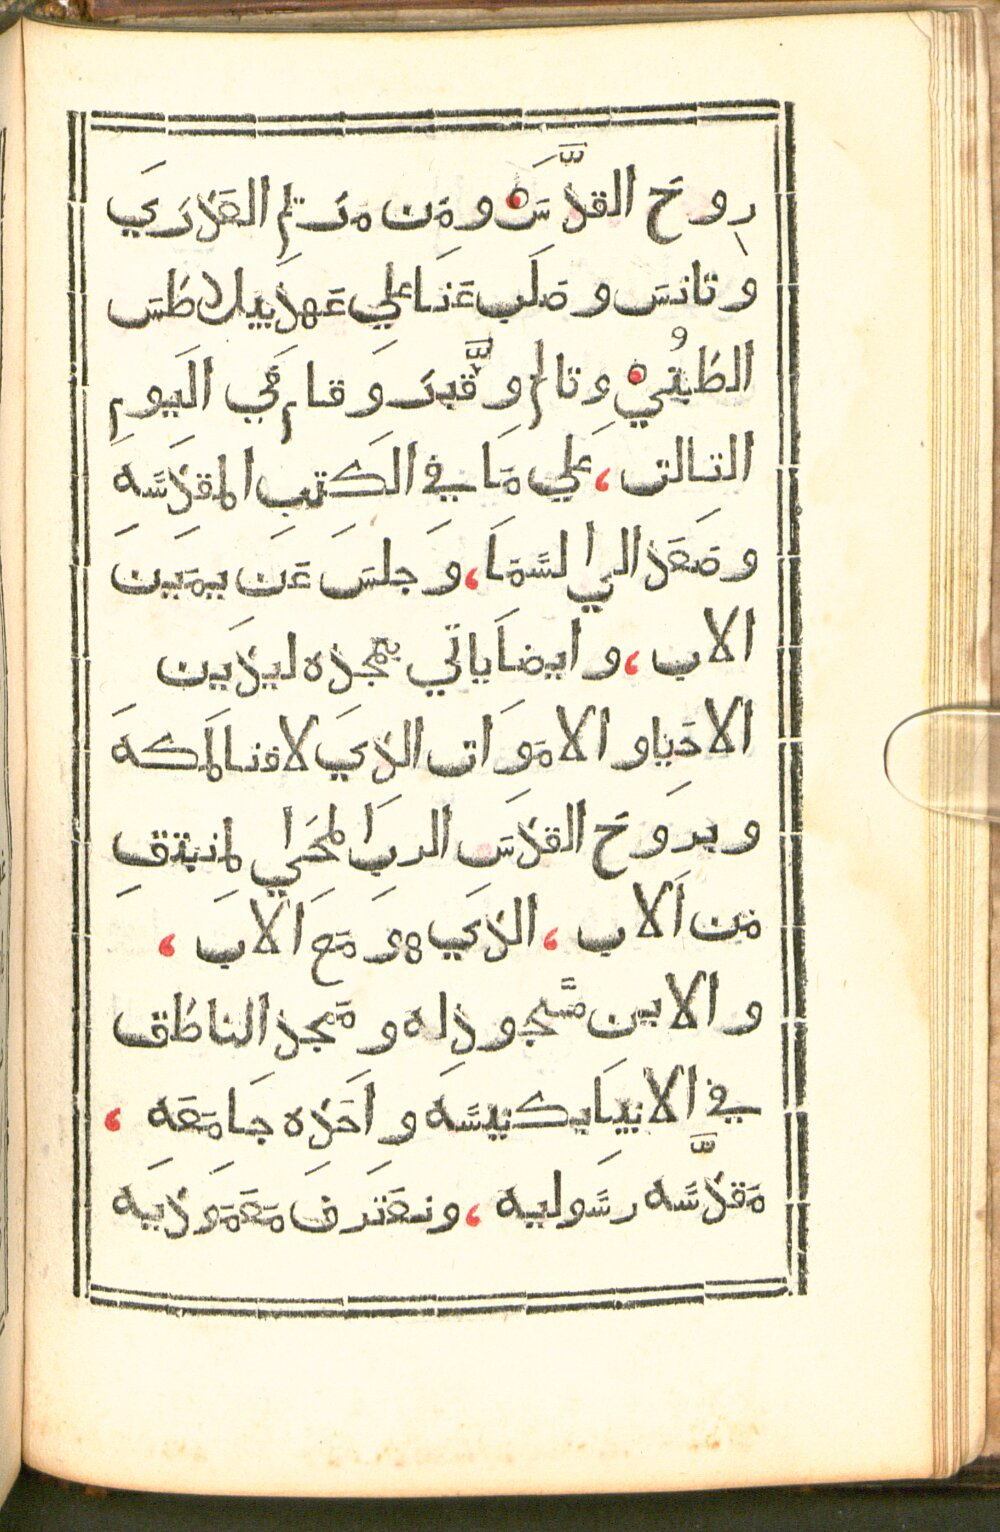 روح القدّس ومن مرتم القدري
وتانس وصلب عنا علي عهد بيلاطس
الطبني وتالم وقبر وقام في اليوم
التالت، علي ما في الكتب المقدسه
وصعد الي السما، وجلس عن يميين
الاب، وايضا ياتي بمجده ليدين
الاحيا والاموات الذي لافنا لملكه
وبروح القدس الرب المحيي لمنبتق
من الاب، الذي هو مع الاب،
والابن مسجود له وممجد الناطق
في الانبيا بكنيسه واحده جامعه،
مقدّسه رسوليه، ونعترف معموديه